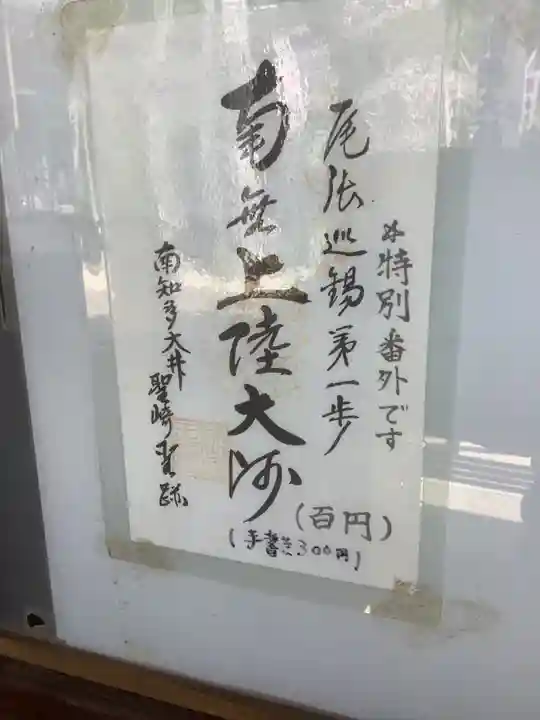 ※特別番外です
尾張巡錫第一歩
南無上陸大師
南知多大井聖崎聖跡
(百円)
(手書き300円)